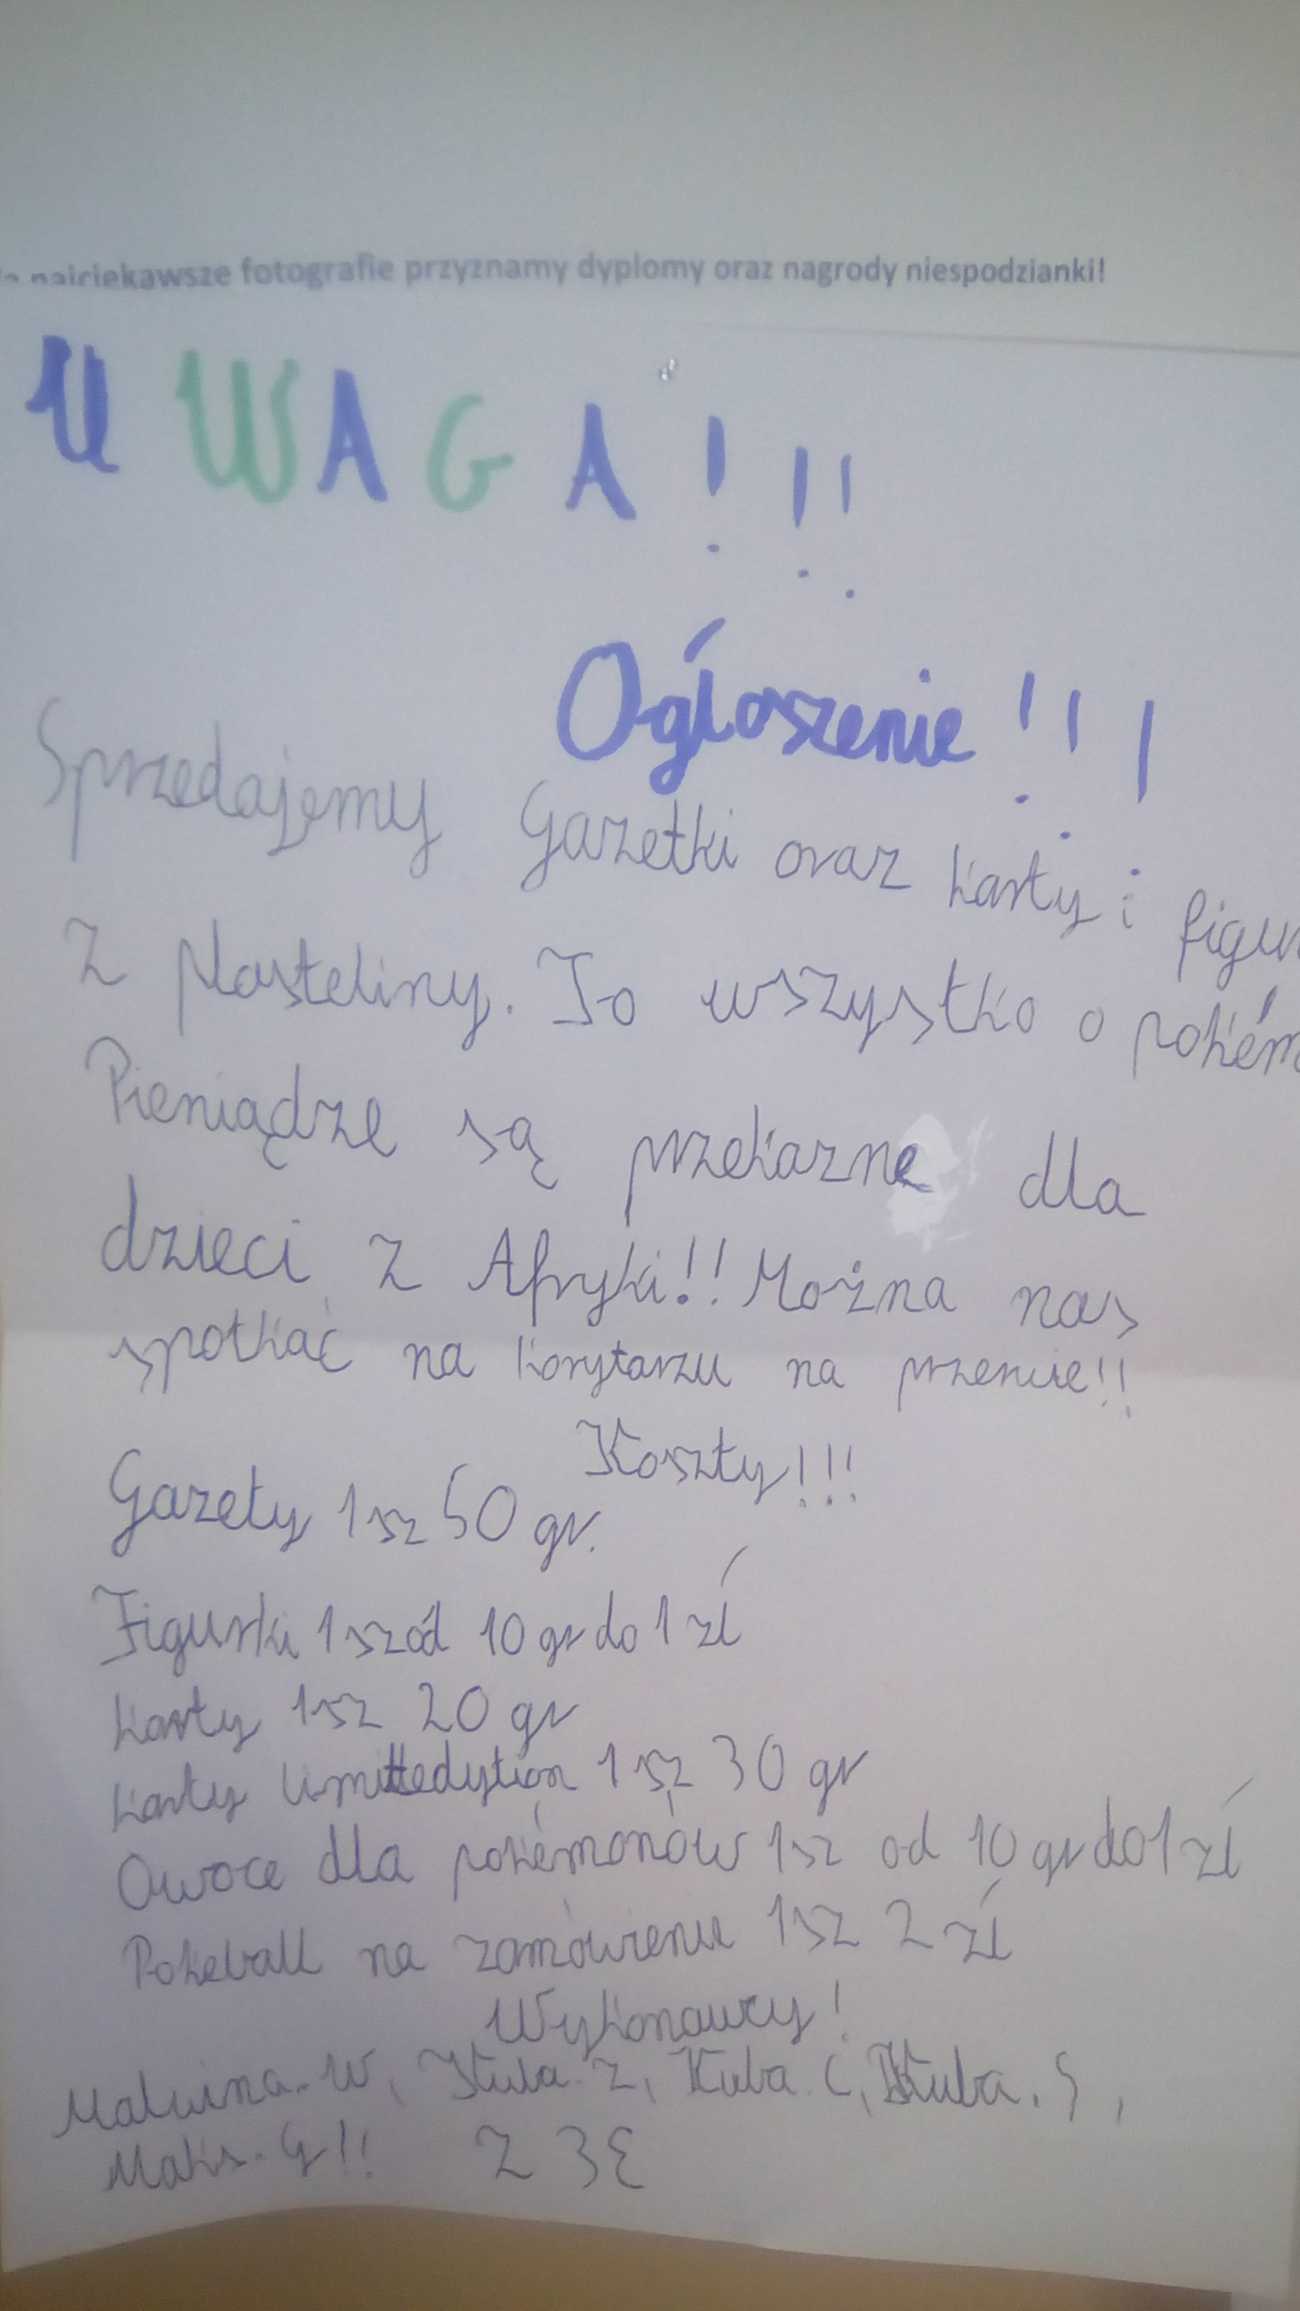 najciekawsze fotografie przyznamy dyplomy oraz nagrody niespodzianki!
UWAGA!!!
Ogłoszenie!!!
Sprzedajemy Gazetki oraz karty i figur
z plasteliny. To wszystko o pokém
Pieniądze są przekazne dla
dzieci z Afryki!! Można nas
spotkać na korytarzu na przerwie!!
Koszty!!!
Gazety 1 sz 50 gr.
Figurki 1 sz ód 10 gr do 1 zł
karty 1 sz 20 gr
karty limittedytion 1 sz 30 gr
Owoce dla pokémonów 1 sz od 10 gr do 1 zł
Pokeball na zamówienie 1 sz 2 zł
Wykonawcy!
Malwina. W, Kuba. Z, Kuba. C, Kuba. S,
Maks. G!! Z 3E